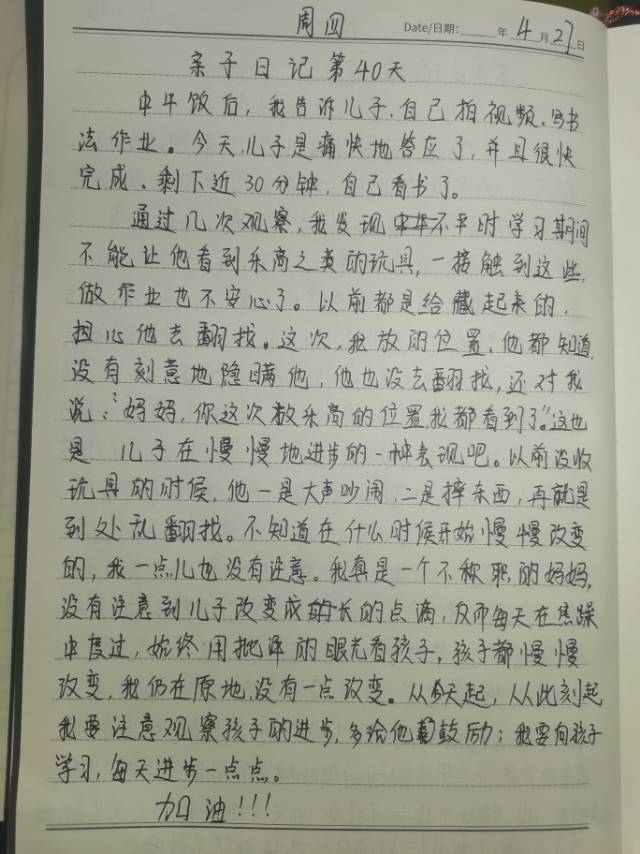 周四 Date/日期: 年 4月27日
亲子日记第40天
中午饭后，我告诉儿子，自己拍视频、写书
法作业。今天儿子是痛快地答应了，并且很快
完成、剩下近30分钟，自己看书了。
通过几次观察，我发现平时学习期间
不能让他看到乐高之类的玩具，一接触到这些，
做作业也不安心了。以前都是给藏起来的，
担心他去翻找。这次，我放的位置、他都知道，
没有刻意地隐瞒他，他也没去翻找，还对我
说："妈妈，你这次放乐高的位置我都看到了。"这也
是 儿子在慢慢地进步的一种表现吧。以前没收
玩具的时候，他一是大声吵闹，二是摔东西，再就是
到处乱翻找。不知道在什么时候开始慢慢改变
的，我一点儿也没有注意。我真是一个不称职的妈妈，
没有注意到儿子改变成长的点滴，反而每天在焦躁
中度过，始终用批评的眼光看孩子，孩子都慢慢
改变，我仍在原地，没有一点改变。从今天起，从此刻起
我要注意观察孩子的进步，多给他鼓励；我要向孩子
学习，每天进步一点点。
加油!!!